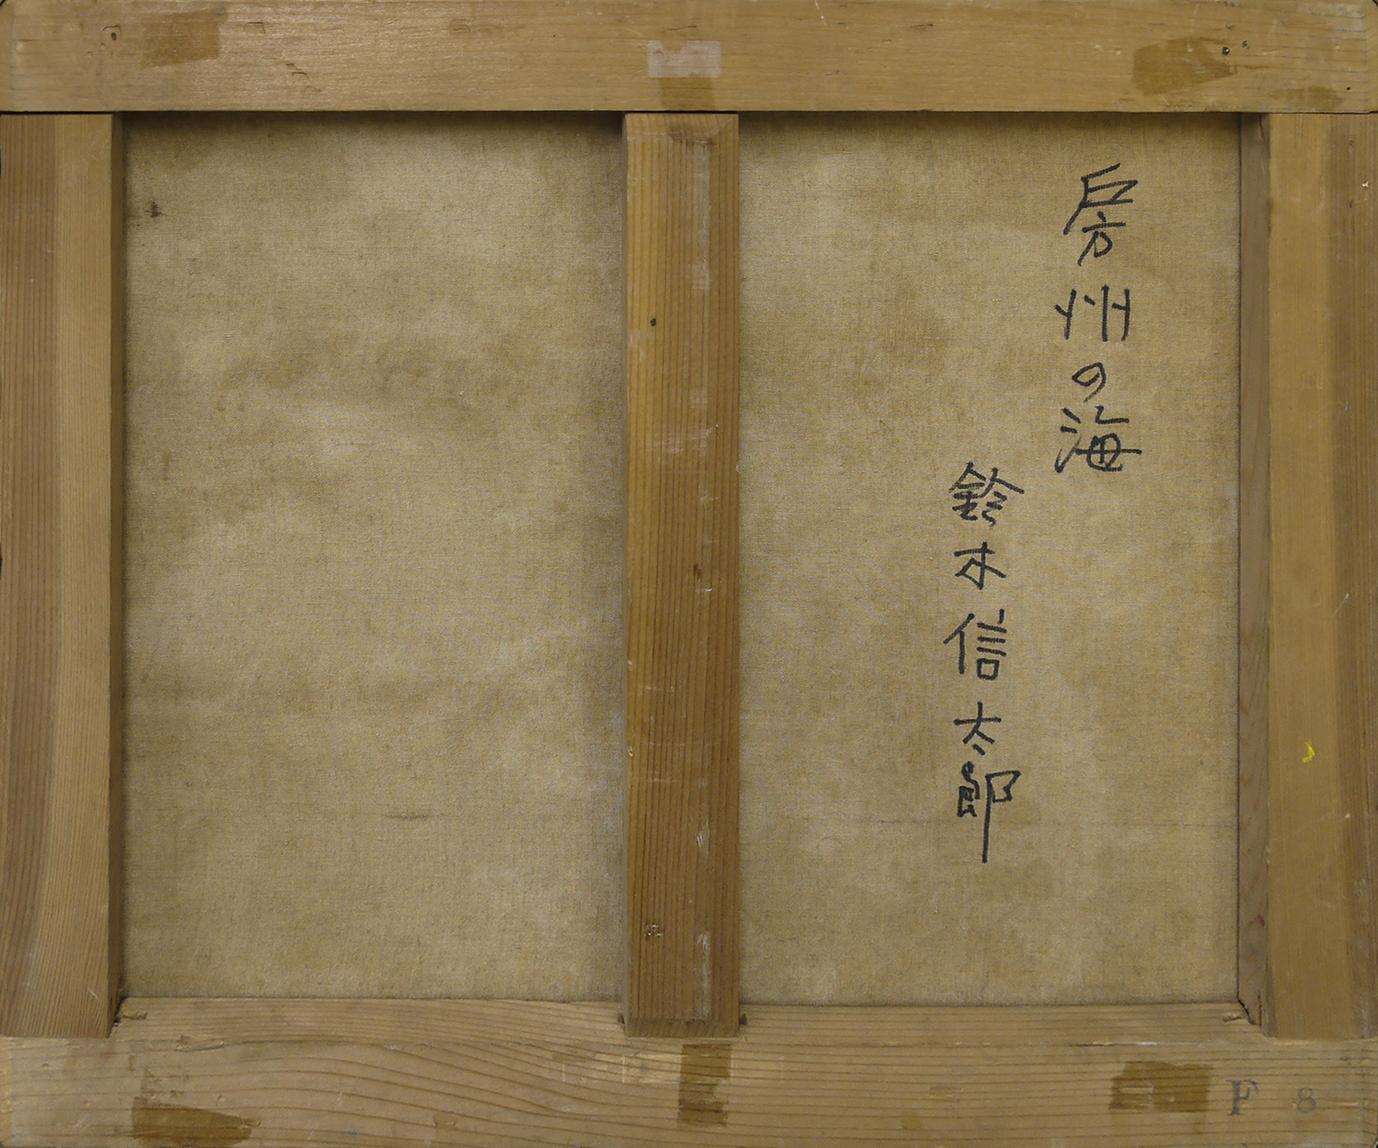 房州の海
鈴木信太郎
F 8